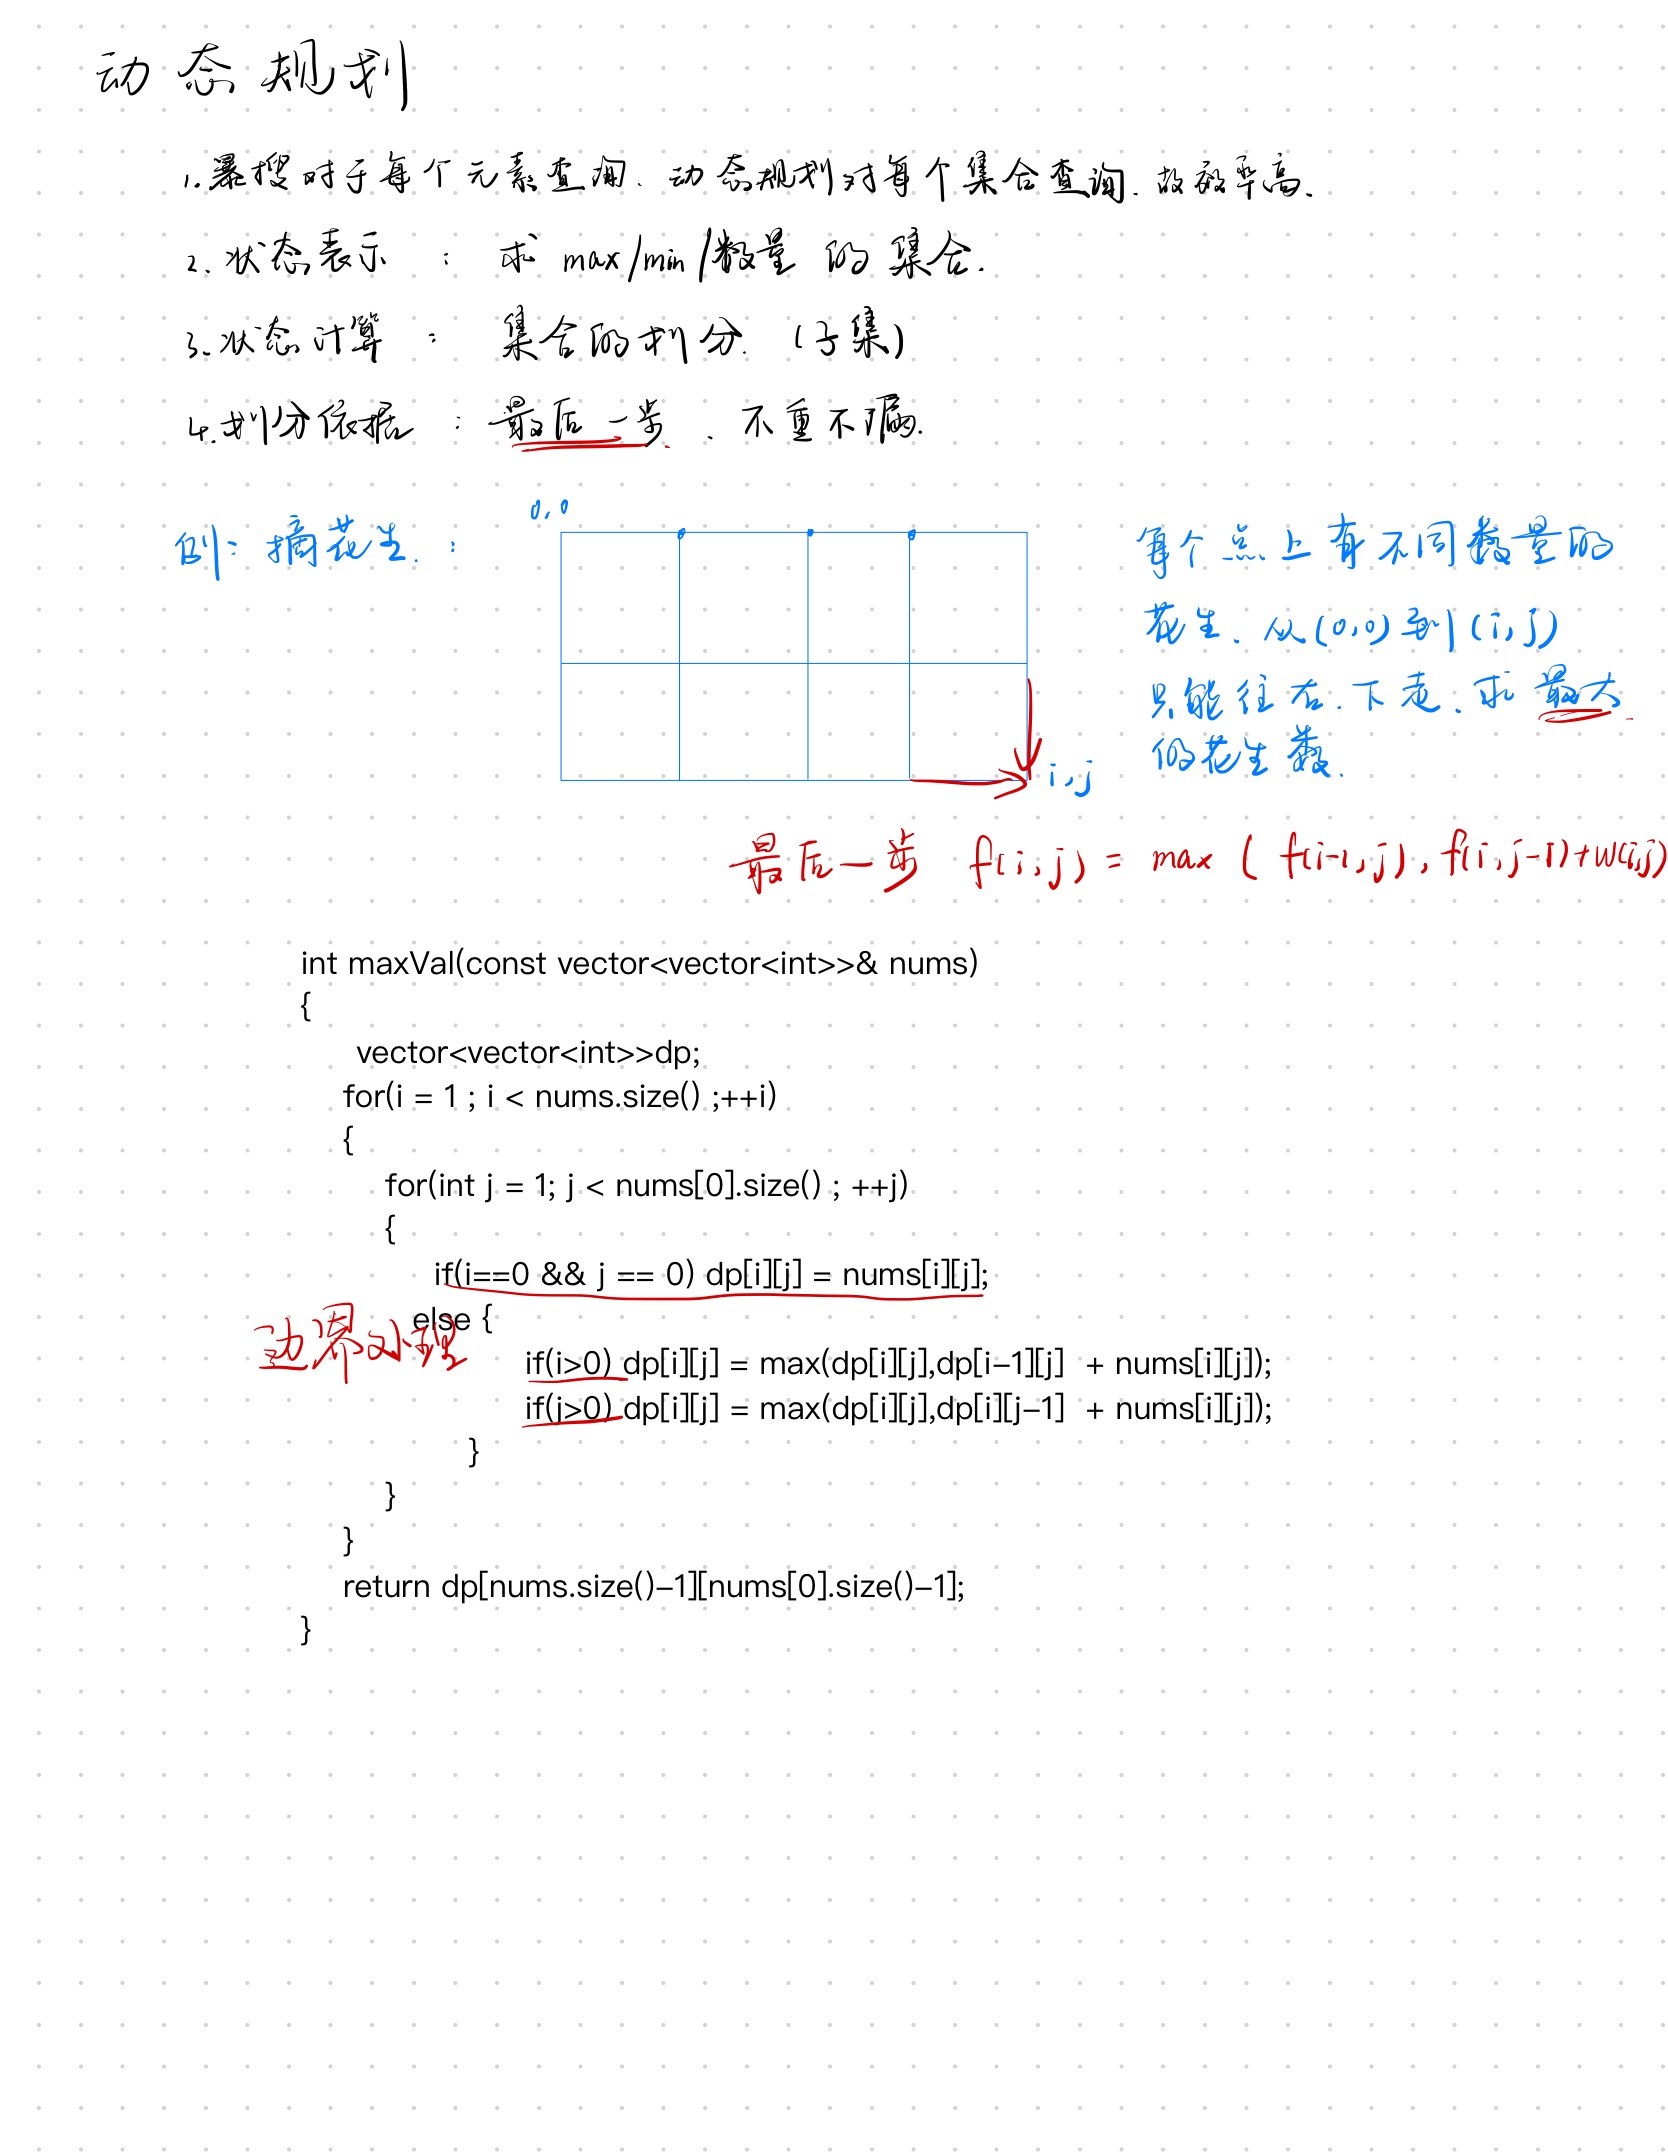 动态规划
1.暴搜对于每个元素查询.动态规划对每个集合查询.故效率高.
2.状态表示 : 求 max/min/数量 的集合.
3.状态计算 : 集合的划分.(子集)
4.划分依据 : 最后一步 . 不重不漏.
例: 摘花生. :
0,0
每个点上有不同数量的
花生.从(0,0)到(i,j)
只能往右.下走.求最大
的花生数.
i,j
最后一步 f(i,j) = max ( f(i-1,j), f(i,j-1)+w(i,j)
int maxVal(const vector<vector<int>>& nums)
{
vector<vector<int>>dp;
for(i = 1 ; i < nums.size() ;++i)
{
for(int j = 1; j < nums[0].size() ; ++j)
{
if(i==0 && j == 0) dp[i][j] = nums[i][j];
else {
边界处理
if(i>0) dp[i][j] = max(dp[i][j],dp[i-1][j] + nums[i][j]);
if(j>0) dp[i][j] = max(dp[i][j],dp[i][j-1] + nums[i][j]);
}
}
}
return dp[nums.size()-1][nums[0].size()-1];
}